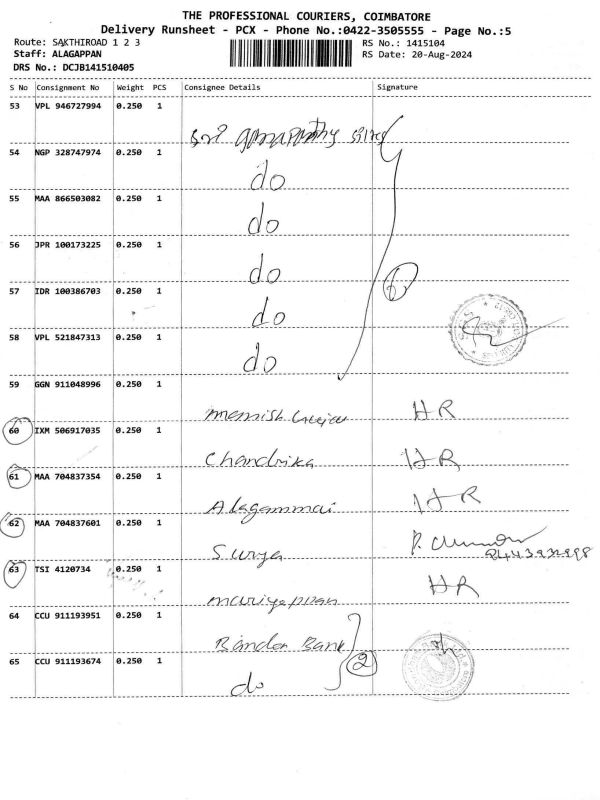 THE PROFESSIONAL COURIERS, COIMBATORE
Delivery Runsheet - PCX - Phone No.:0422-3505555 - Page No.:5
Route: SAKTHIROAD 1 2 3 RS No.: 1415104
Staff: ALAGAPPAN RS Date: 20-Aug-2024
DRS No.: DCJB141510405
S No Consignment No Weight PCS Consignee Details Signature
53 VPL 946727994 0.250 1
Sri Ganapathy
54 NGP 328747974 0.250 1
do
55 MAA 866503082 0.250 1
do
56 JPR 100173225 0.250 1
do
57 IDR 100386703 0.250 1 6
do
58 VPL 521847313 0.250 1
do
59 GGN 911048996 0.250 1
HR
60 IXM 506917035 0.250 1
Chandrika HR
61 MAA 704837354 0.250 1
Alagammai HR
62 MAA 704837601 0.250 1
Surya
63 TSI 4120734 0.250 1
mariyappan HR
64 CCU 911193951 0.250 1
Bandan Bank
65 CCU 911193674 0.250 1 2
do